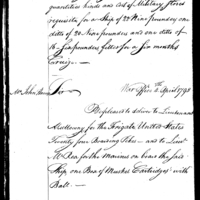 quantities kinds and Cost of Military Stores
requisite for a Ship of 24 Nine pounders, one
ditto of 20 Nine pounders and one ditto of
16 Six pounders fitted for a six months
Cruize
War Office 3 April 1798
Mr John Harris
Sir
Be pleased to deliver to Lieutenant
Mullowny for the Frigate United States
Twenty four Boarding Pikes - and to Lieut
McRea for the Marines on board the said
Ship one Box of Musket Cartridges with
Ball.